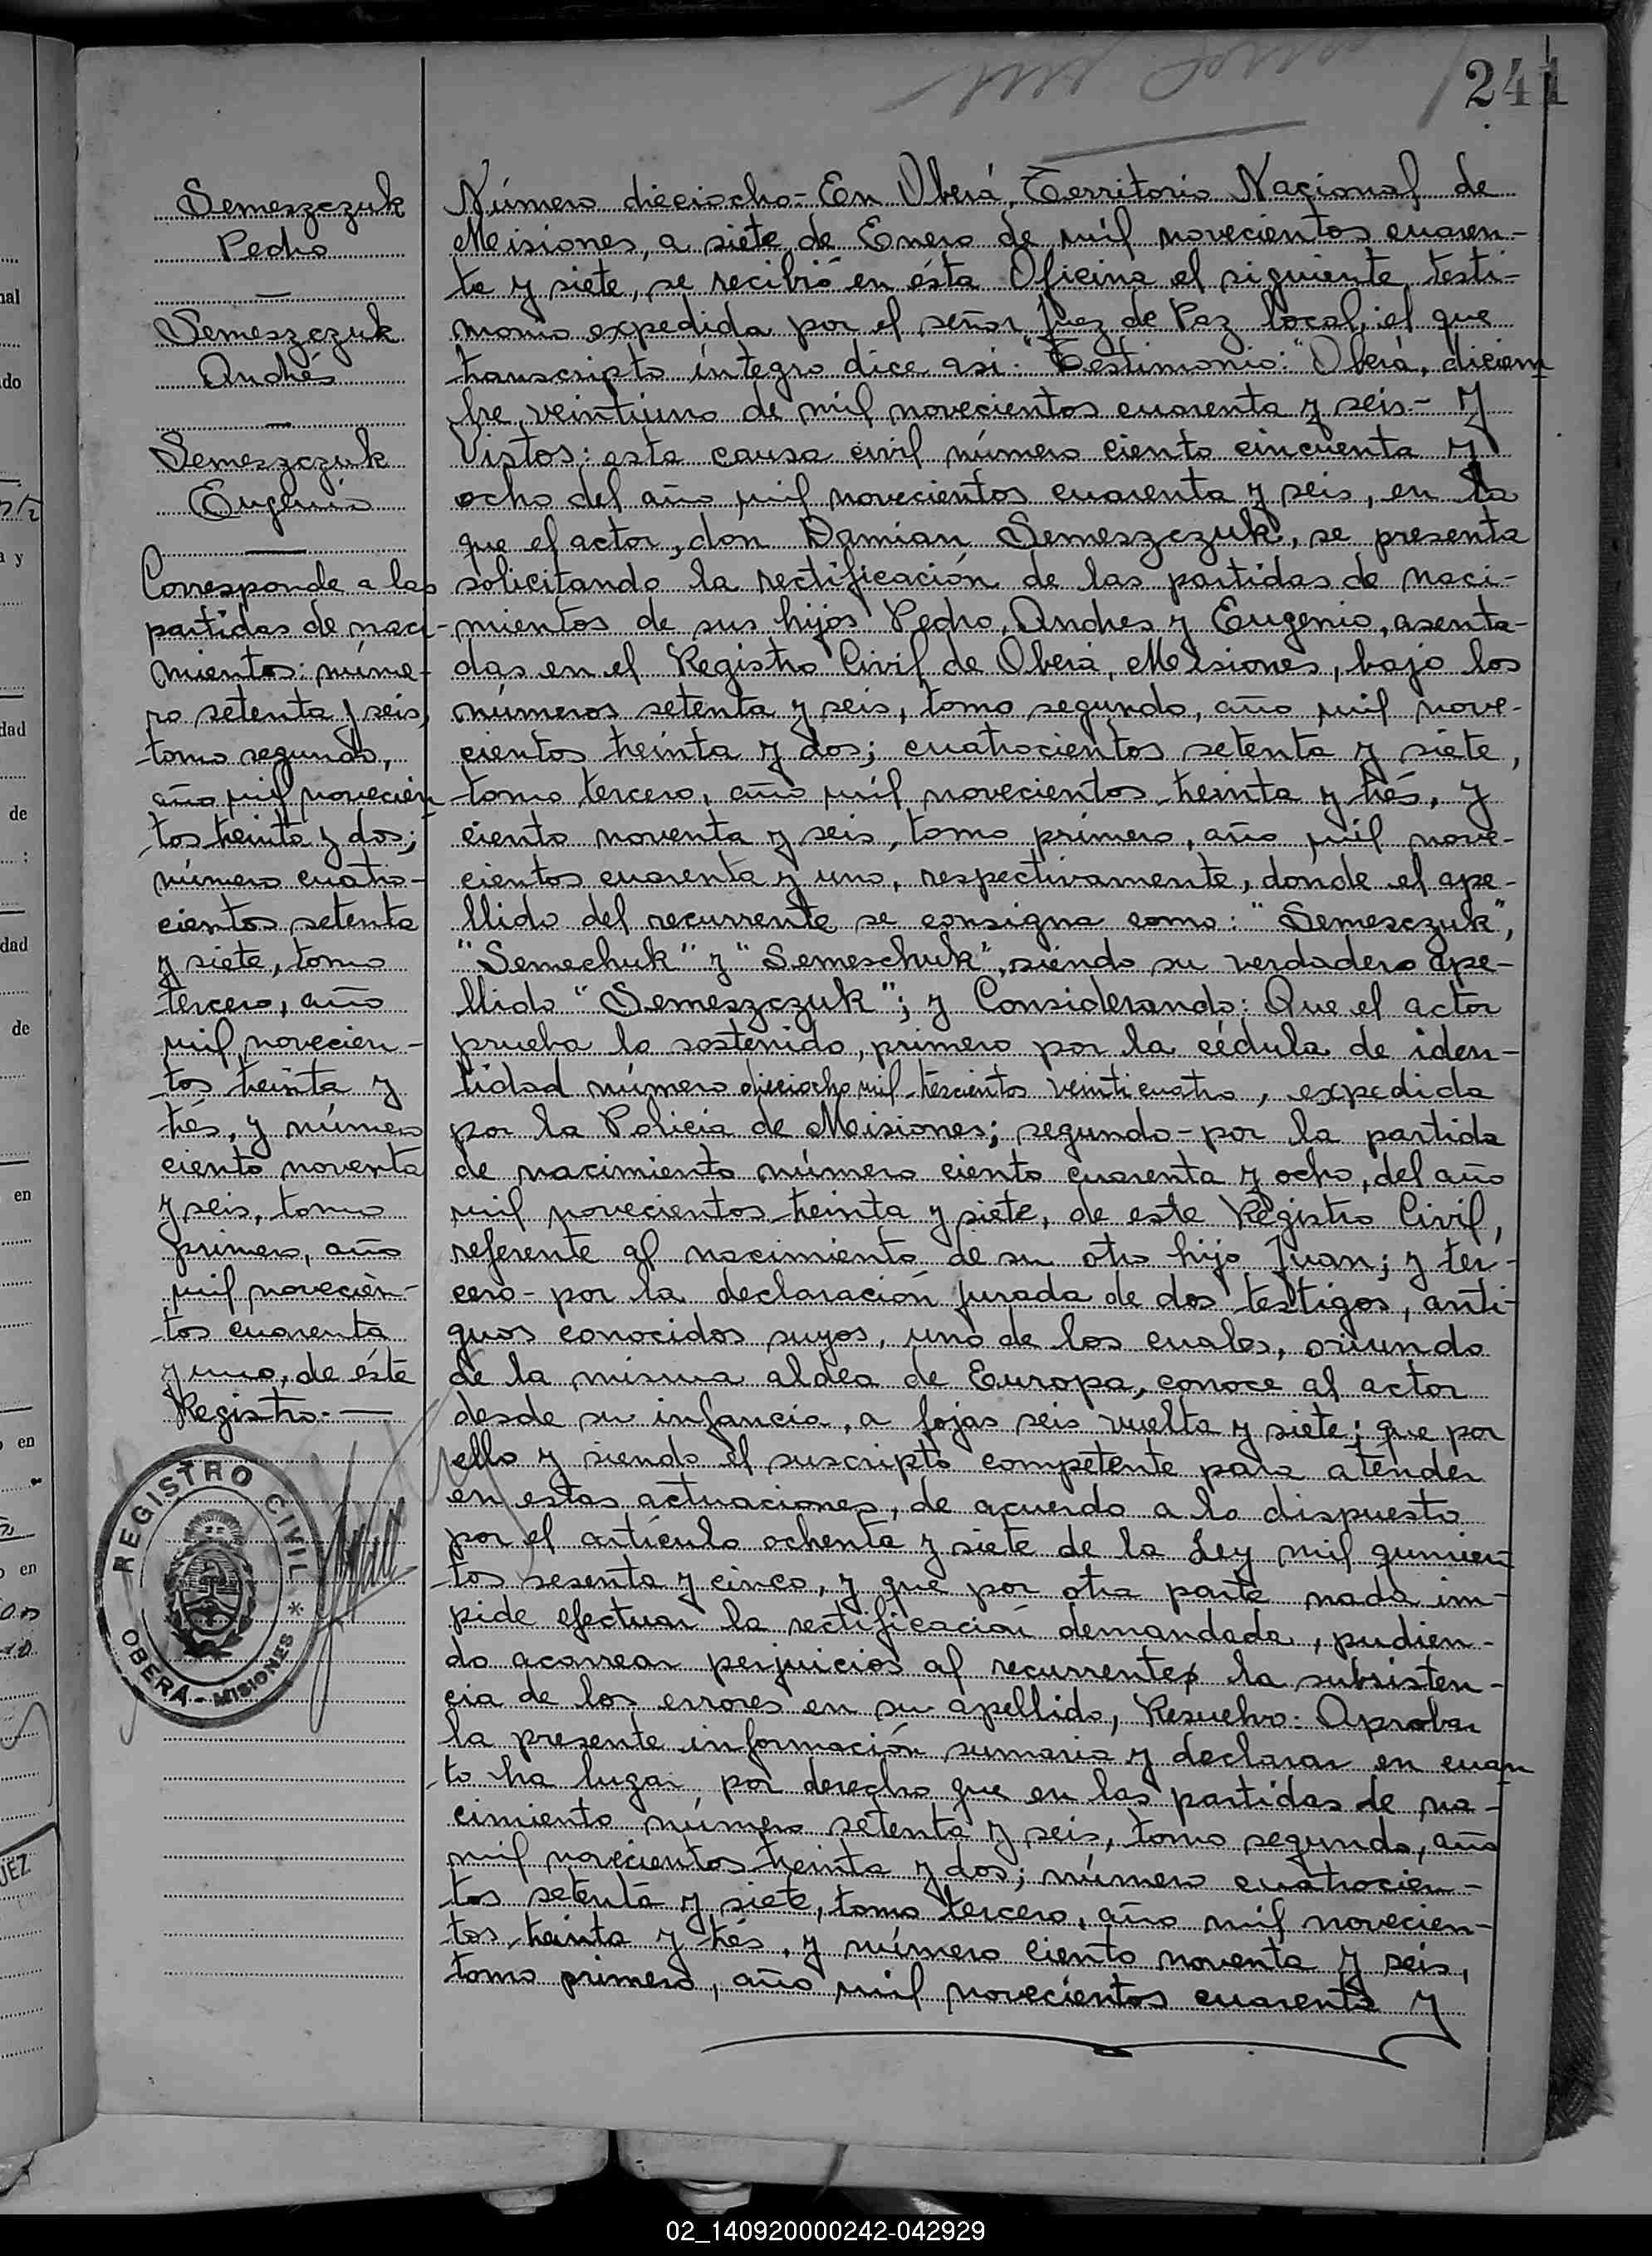 241
Semeszczuk
Pedro
Semeszczuk
Andrés
Semeszczuk
Eugenio
Corresponde a las
partidas de naci-
mientos: núme-
ro setenta y seis,
tomo segundo,
año mil novecien
tos treinta y dos;
número cuatro-
cientos setenta
y siete, tomo
tercero, año
mil novecien-
tos treinta y
trés, y número
ciento noventa
y seis, tomo
primero, año
mil novecien-
tos cuarenta
y uno, de éste
Registro.-
REGISTRO CIVIL
OBERÁ - MISIONES
Número dieciocho- En Oberá, Territorio Nacional de
Misiones, a siete de Enero de mil novecientos cuaren-
ta y siete, se recibió en ésta Oficina el siguiente testi-
monio expedida por el señor Juez de Paz local, el que
transcripto íntegro dice asi: "Testimonio: "Oberá, diciem
bre veintiuno de mil novecientos cuarenta y seis- Y
Vistos: esta causa civil número ciento cincuenta y
ocho del año mil novecientos cuarenta y seis, en la
que el actor, don Damian Semeszczuk, se presenta
solicitando la rectificación de las partidas de naci-
mientos de sus hijos Pedro, Andres y Eugenio, asenta-
das en el Registro Civil de Oberá, Misiones, bajo los
números setenta y seis, tomo segundo, año mil nove-
cientos treinta y dos; cuatrocientos setenta y siete,
tomo tercero, año mil novecientos treinta y trés, y
ciento noventa y seis, tomo primero, año mil nove-
cientos cuarenta y uno, respectivamente, donde el ape-
llido del recurrente se consigna como: "Semesczuk",
"Semechuk" y "Semeschuk", siendo su verdadero ape-
llido "Semeszczuk"; y Considerando: Que el actor
prueba lo sostenido, primero por la cédula de iden-
tidad número dieciocho mil trescientos veinticuatro, expedida
por la Policía de Misiones; segundo-por la partida
de nacimiento número ciento cuarenta y ocho, del año
mil novecientos treinta y siete, de este Registro Civil,
referente al nacimiento de su otro hijo Juan; y ter-
cero-por la declaración jurada de dos testigos, anti-
guos conocidos suyos, uno de los cuales, oriundo
de la misma aldea de Europa, conoce al actor
desde su infancia, a fojas seis vuelta y siete; que por
ello y siendo el suscripto competente para atender
en estas actuaciones, de acuerdo a lo dispuesto
por el artículo ochenta y siete de la Ley mil quinien
tos sesenta y cinco, y que por otra parte nada im-
pide efectuar la rectificación demandada, pudien-
do acarrear perjuicios al recurrente la subsisten-
cia de los errores en su apellido, Resuelvo: Aprobar
la presente información sumaria y declarar en cuan
to ha lugar por derecho que en las partidas de na-
cimiento número setenta y seis, tomo segundo, año
mil novecientos treinta y dos; número cuatrocien-
tos setenta y siete, tomo tercero, año mil novecien-
tos treinta y trés, y número ciento noventa y seis,
tomo primero, año mil novecientos cuarenta y
02_140920000242-042929